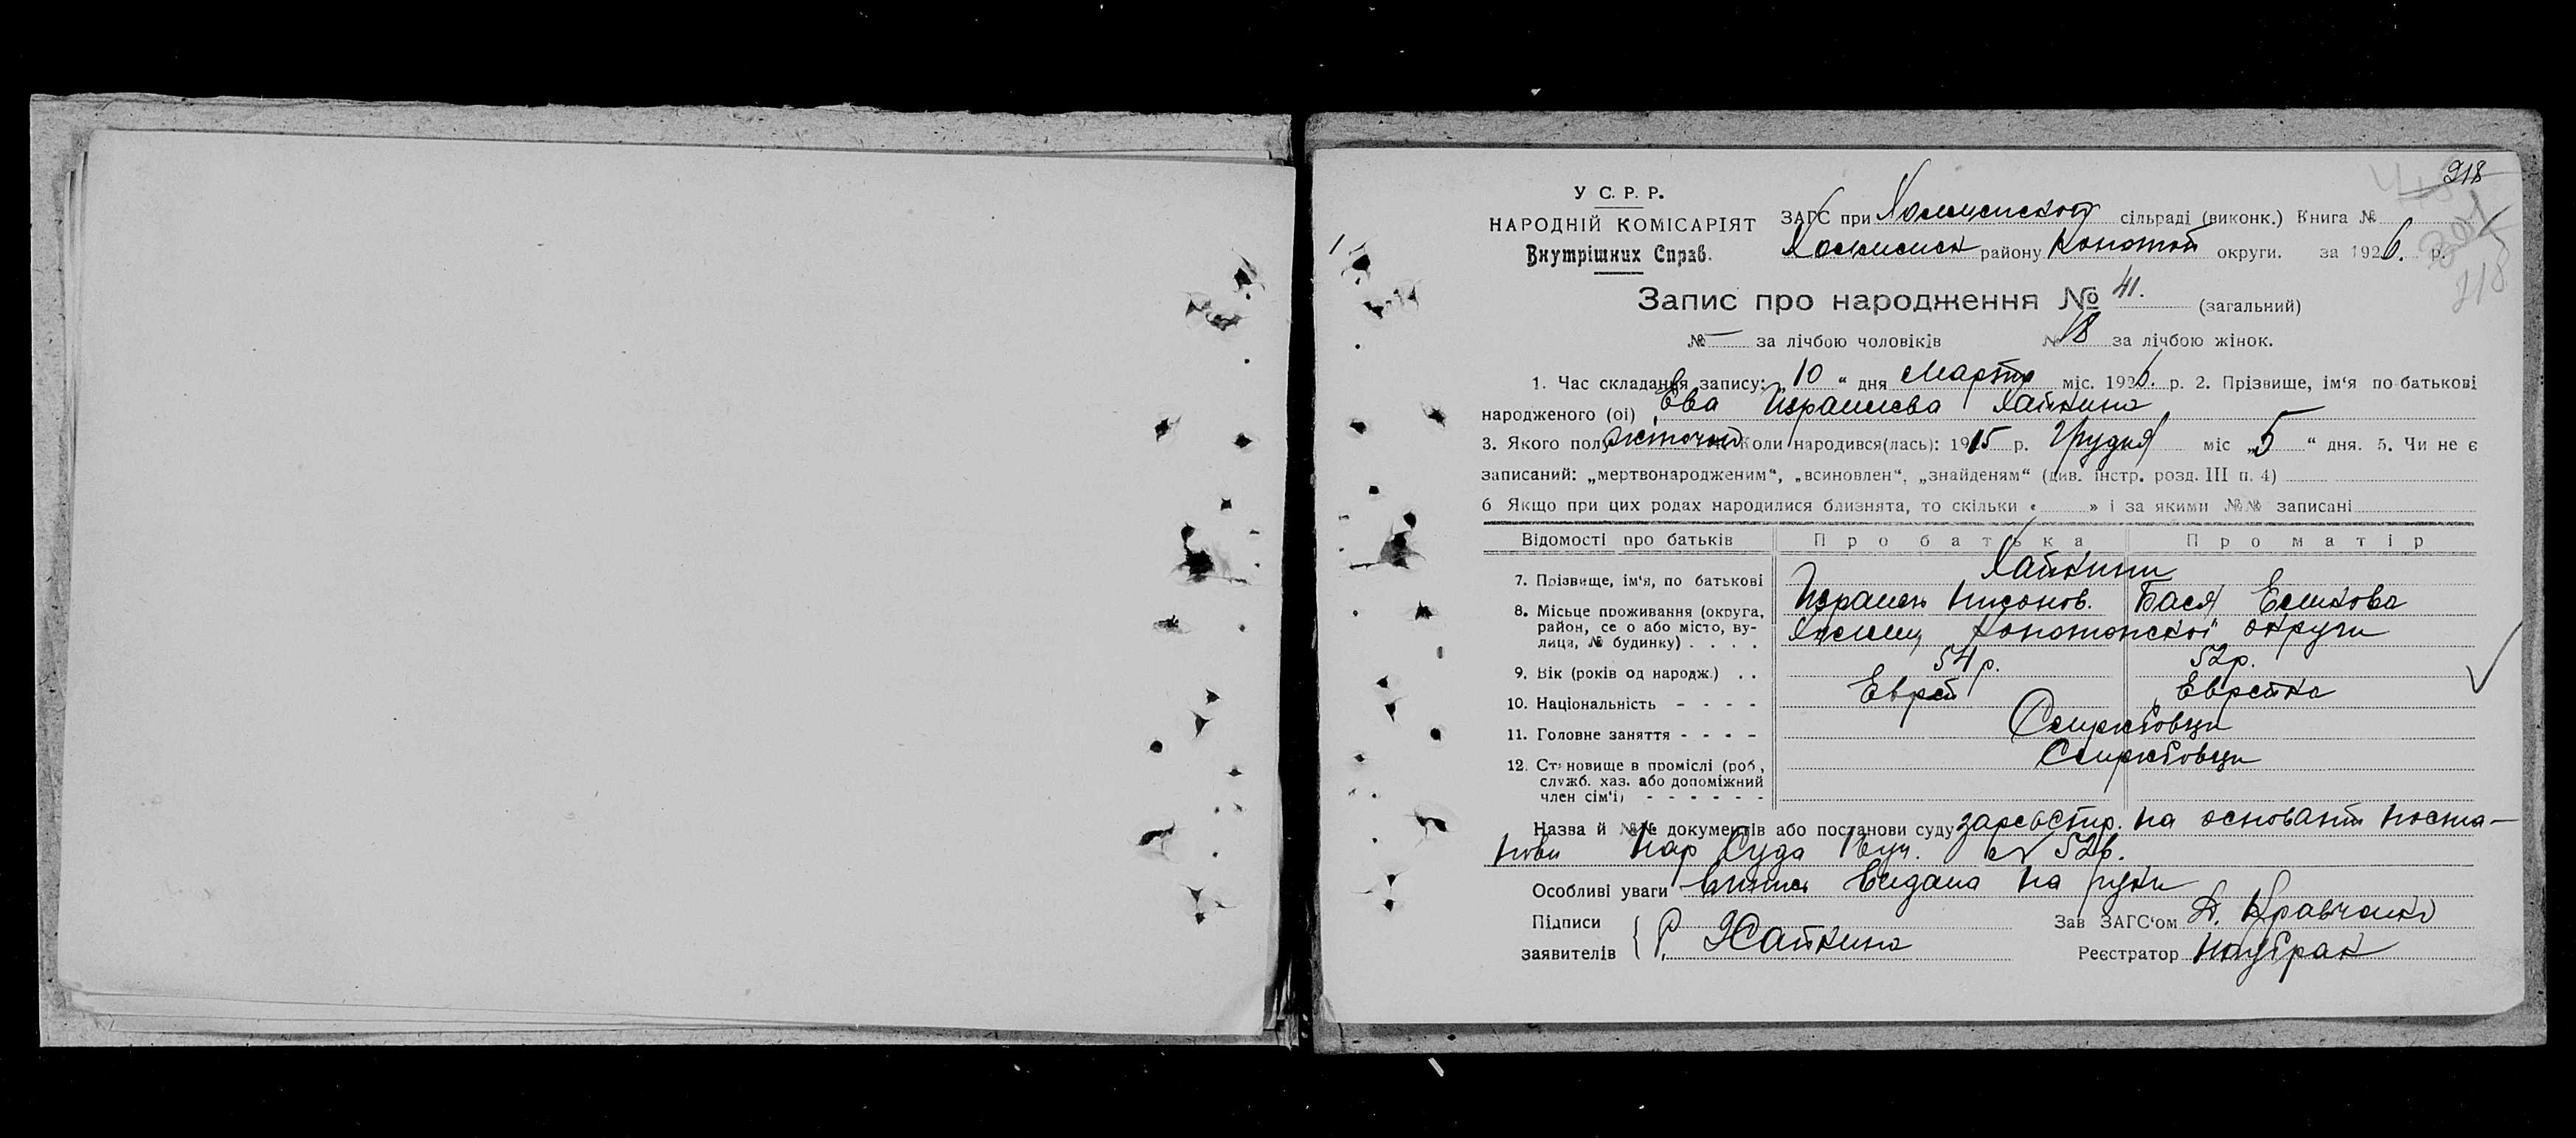 218
У С. Р. Р.
НАРОДНІЙ КОМІСАРІЯТ
Внутрішних Справ.
ЗАГС при Холменской сільраді (виконк.) Книга №
Холменск району Конотоп округи. за 1926. р.
218
Запис про народження № 41. (загальний)
№ — за лічбою чоловіків № 18 за лічбою жінок.
1. Час складання запису: „ 10 “ дня Марта міс. 1926. р. 2. Прізвище, ім‘я по-батькові
народженого (ої) Ева Израилева Хайкина
3. Якого полу жіночої Коли народився(лась): 1915 р. Грудня міс „5 “ дня. 5. Чи не є
записаний: „мертвонародженим“, „всиновлен“, „знайденям“ (див. інстр. розд. III п. 4)
6 Якщо при цих родах народилися близнята, то скільки « » і за якими №№ записані
Відомості про батьків Про батька Про матір
Хайкини
7. Прізвище, ім‘я, по батькові
Израиль Нисонов. Бася
8. Місьце проживання (округа, район, се о або місто, ву-
лиця, № будинку) . . . .
Холми, Конотопської округи
9. Вік (років од народж.) . . 54 р. 52 р.
10. Національність - - - - Еврей Еврейка
11. Головне заняття - - - - Службовци
12. Становище в проміслі (роб,
служб. хаз. або допоміжний
член сім‘ї) - - - - - -
Службовци
Назва й №№ документів або постанови суду зареєстр. на основании поста-
нови Нар Суда № 52
Особливі уваги Выпись видана на руки
Підписи
заявителів Р. Хайкина
Зав ЗАГС‘ом Кравченко
Реєстратор